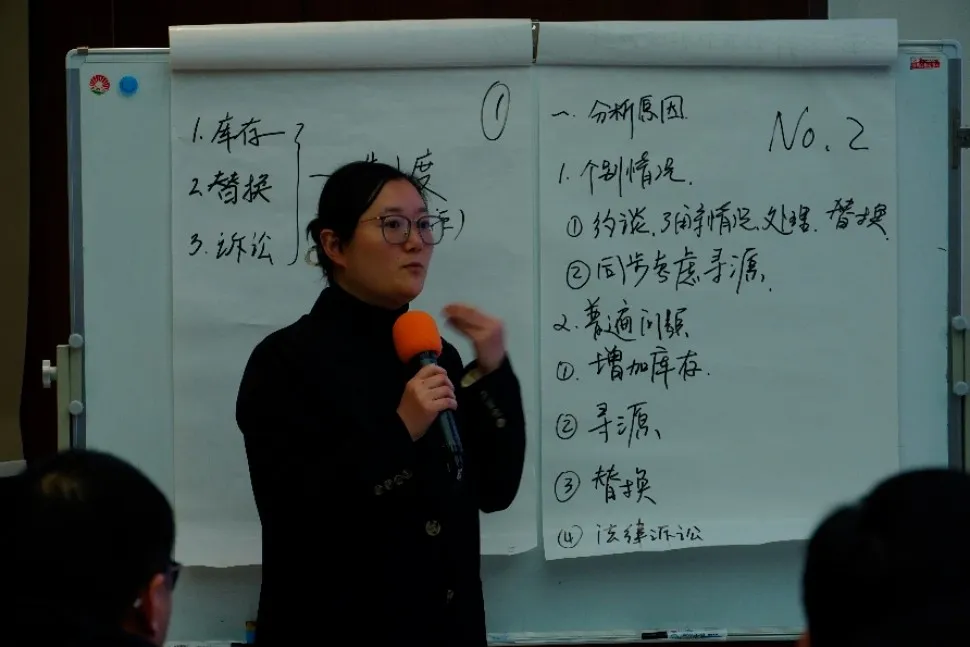 ①
1. 库存
2. 替换
3. 诉讼
制度
No. 2
一. 分析原因.
1. 个别情况.
① 约谈、了解情况、处理、替换.
② 同步考虑寻源.
2. 普遍问题
①. 增加库存.
② 寻源、
③ 替换
④ 法律诉讼